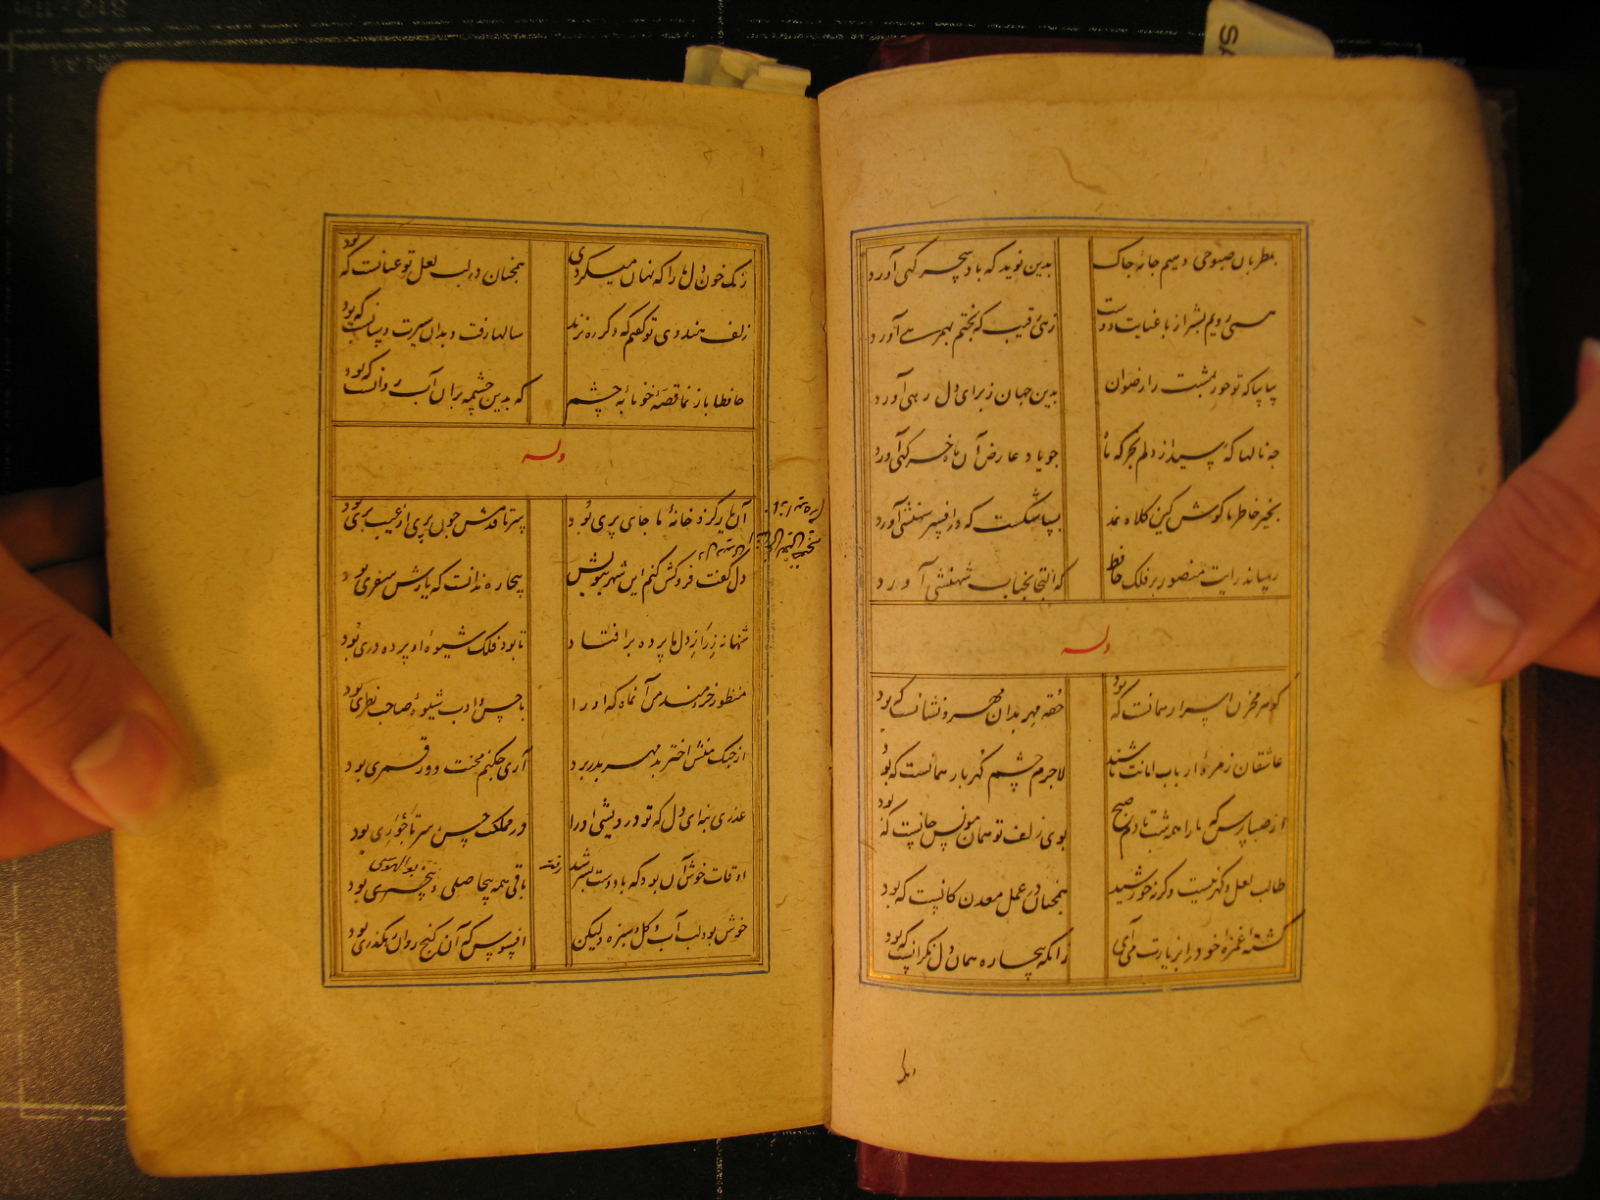 بمطربان صبوحی دهیم جامه چاک
بدین نوید که باد سحر کهی آورد
همی رویم بشیراز با عنایت دوست
زهی رفیق که بختم بهمرهی آورد
بیا بیا که تو حور بهشت را رضوان
بدین جهان ز برای دل رهی آورد
چه نالها که رسید از دلم بخرگه ماه
چو یاد عارض آن ماه خرکهی آورد
بخیر خاطر ما کوش کین کلاه نمد
بسا شکست که در افسر شهنشهی آورد
رساند رایت منصور بر فلک حافظ
که التجا بجناب شهنشهی آورد
وله
گوهر مخزن اسرار همانست که بود
حقه مهر بدان مهر و نشانست که بود
عاشقان زمره ارباب امانت باشند
لاجرم چشم گهر بار همانست که بود
از صبا پرس که ما را همه شب تا دم صبح
بوی زلف تو همان مونس جانست که بود
طالب لعل و گهر نیست وگرنه خورشید
همچنان در عمل معدن کانیست که بود
کشته غمزه خود را بزیارت می آی
زانکه بیچاره همان دل نگرانست که بود
رنگ خون دل ما را که نهان میکردی
همچنان در لب لعل تو عیانست که بود
زلف هندوی تو گفتم که دگر ره نزند
سالها رفت و بدان سیرت و سانست که بود
حافظا باز نما قصه خونابه چشم
که بدین چشمه همان آب روانست که بود
وله
آن یار کزو خانه ما جای پری بود
سر تا قدمش چون پری از عیب بری بود
دل گفت فروکش کنم این شهر ببویش
بیچاره ندانست که یارش سفری بود
تنها نه ز راز دل ما پرده برافتاد
تا بود فلک شیوه او پرده دری بود
منظور خردمند من آن ماه که او را
با حسن و ادب شیوه صاحب نظری بود
از چنگ منش اختر بد مهر بدر برد
آری چکنم محنت دور قمری بود
عذری بنه ای دل که تو درویشی و او را
در مملکت حسن سر تاجوری بود
اوقات خوش آن بود که با دوست بسر شد
رفت
باقی همه بیحاصلی و بیخبری بود
بوالهوسی
خوش بود لب آب و گل و سبزه ولیکن
افسوس که آن گنج روان رهگذری بود